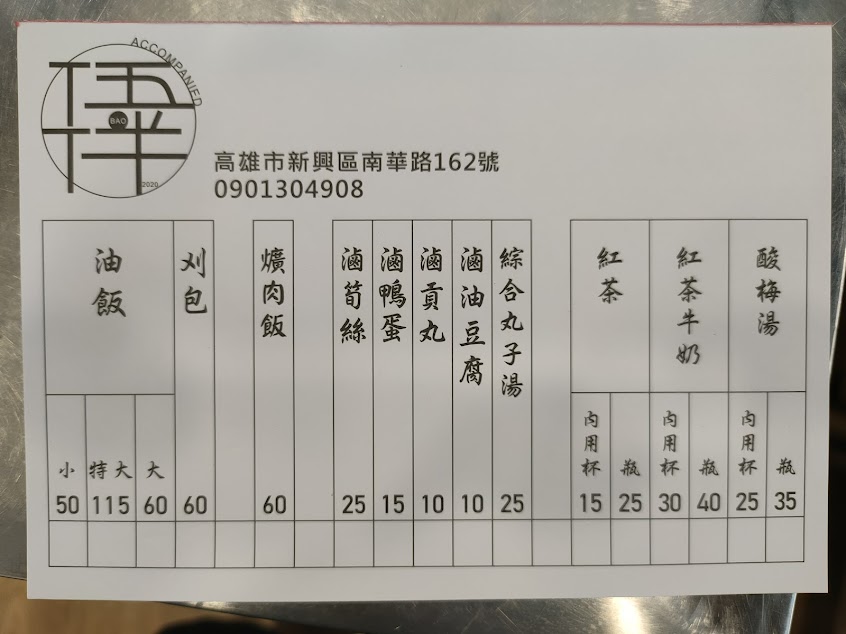 ACCOMPANIED
BAO
2020
高雄市新興區南華路162號
0901304908
油飯
小 50
特大 115
大 60
刈包 60
爌肉飯 60
滷筍絲 25
滷鴨蛋 15
滷貢丸 10
滷油豆腐 10
綜合丸子湯 25
紅茶
內用杯 15
瓶 25
紅茶牛奶
內用杯 30
瓶 40
酸梅湯
內用杯 25
瓶 35